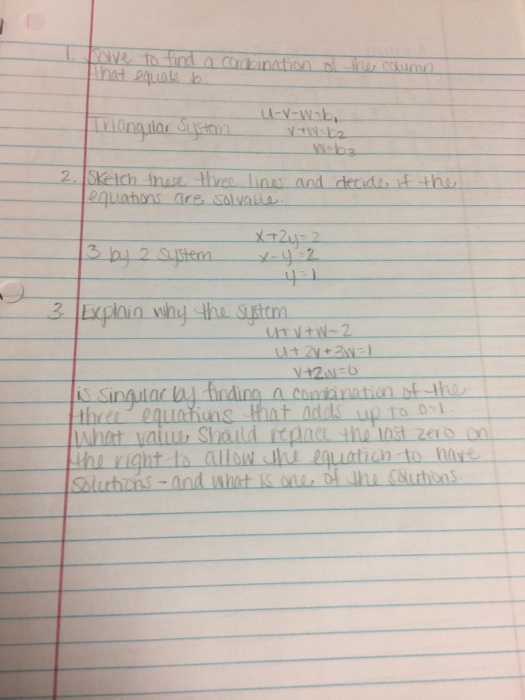 1. Solve to find a combination of the column
that equals b.
u-v-w=b1
Triangular System v+w=b2
w=b3
2. Sketch these three lines and decide if the
equations are solvable.
x+2y=2
3 by 2 system x-y=2
y=1
3. Explain why the system
u+v+w=2
u+2v+3w=1
v+2w=0
is singular by finding a combination of the
three equations that adds up to 0=1.
What value should replace the last zero on
the right to allow the equation to have
solutions - and what is one of the solutions.